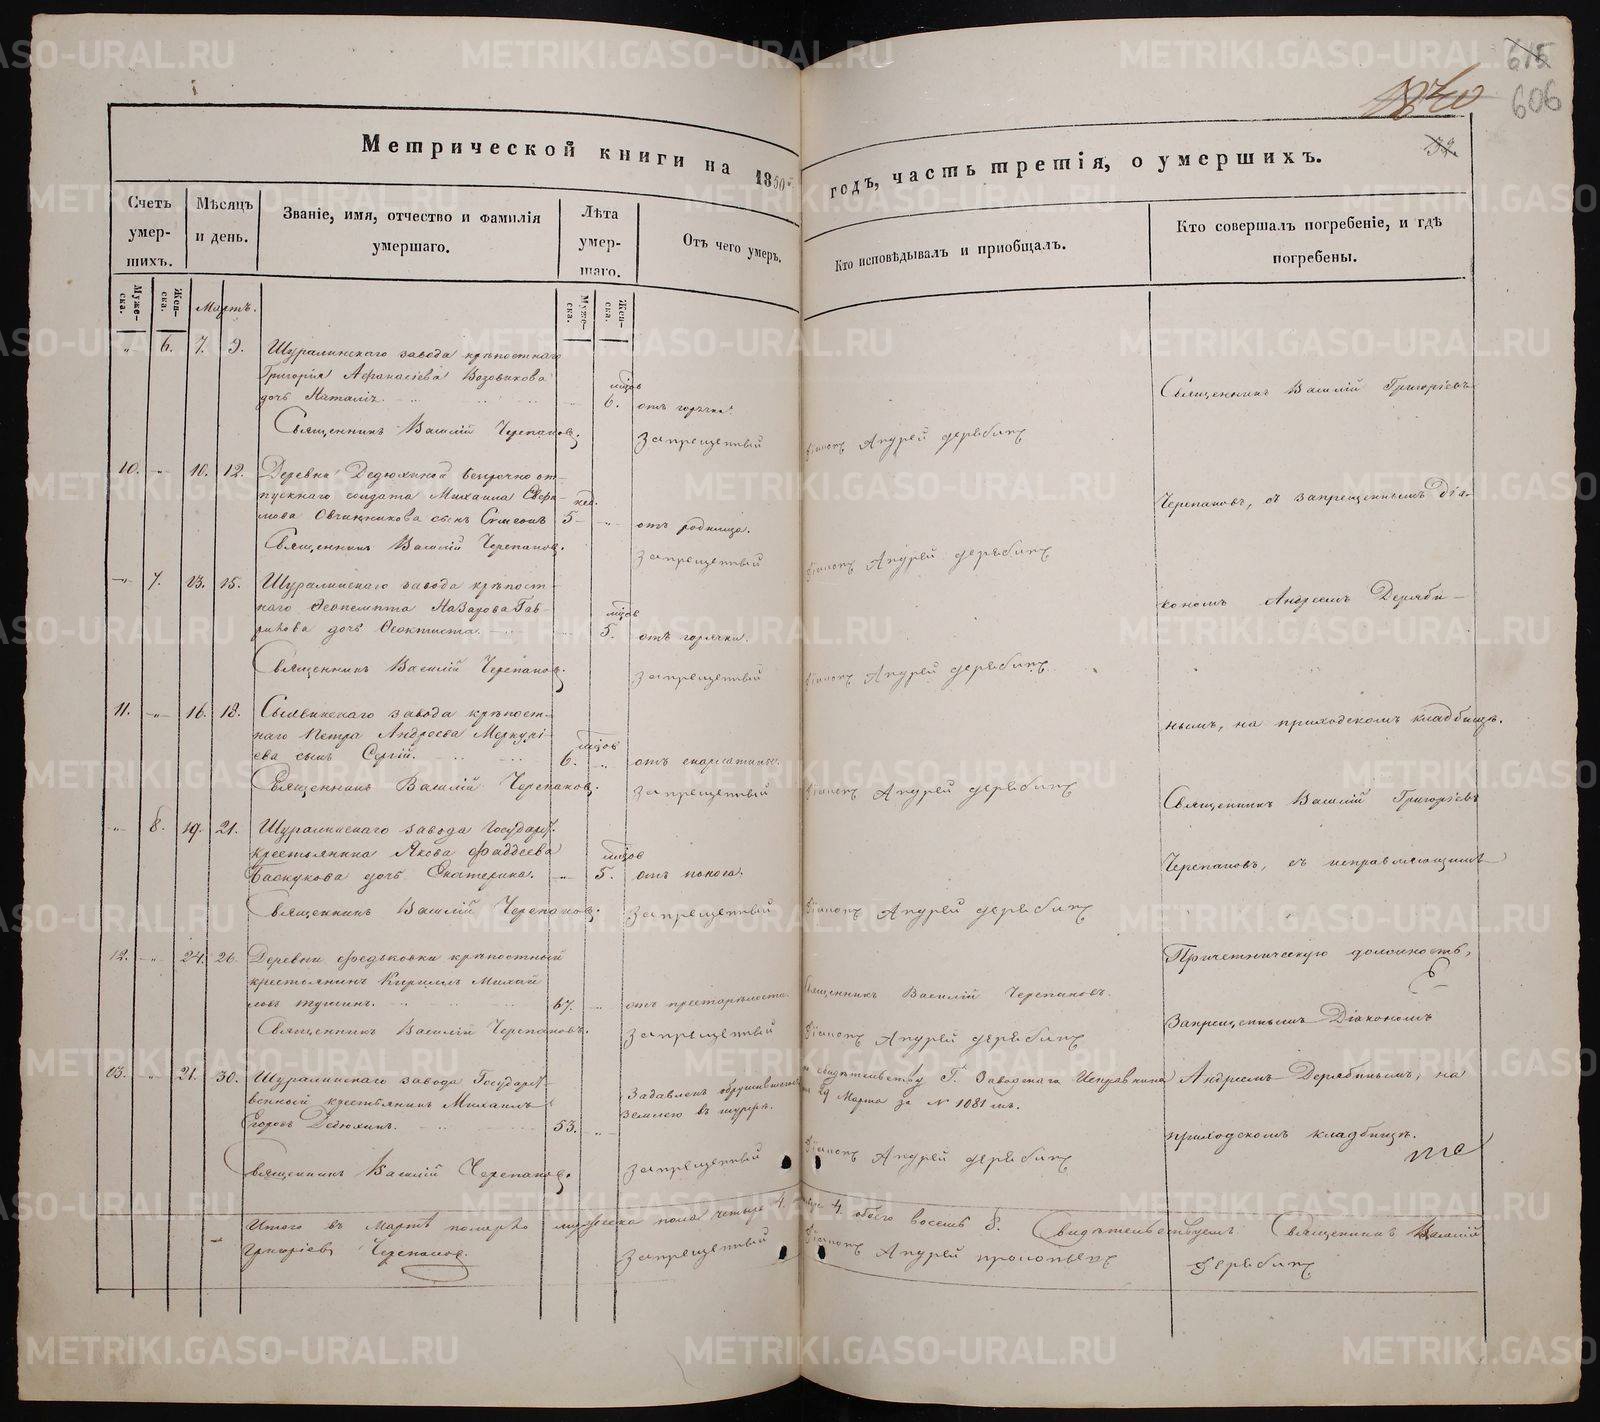 615
606
1240
32.
Метрической книги на 1850й годъ, часть третія, о умершихъ.
Счетъ умер-шихъ.
Мѣсяцъ и день.
Званіе, имя, отчество и фамилія умершаго.
Лѣта умер-шаго.
Отъ чего умеръ.
Кто исповѣдывалъ и пріобщалъ.
Кто совершалъ погребеніе, и гдѣ погребены.
Муже-ска.
Жен-ска.
Мартъ.
Муже-ска.
Жен-ска.
„ 6. 7. 9. Шуралинскаго завода крѣпостнаго
Григорія Афанасіева Возовикова
дочь Наталія. мцов 6. отъ горячки.
Священникъ Василій Черепановъ. Запрещенный Діаконъ Андрей Дерябинъ
Священникъ Василій Григорьевъ
10. „ 10. 12. Деревни Дедюхиной безсрочно от-
пускнаго солдата Михаила
Овчинникова сынъ Симеонъ нед. 5 „ отъ родимца.
Священникъ Василій Черепановъ. Запрещенный Діаконъ Андрей Дерябинъ
Черепановъ, съ запрещеннымъ Діа-
„ 7. 13. 15. Шуралинскаго завода крѣпост-
наго Феопемпта Назарова Гав-
рикова дочь Феоктиста. мцов 5. отъ горячки.
Священникъ Василій Черепановъ. Запрещенный Діаконъ Андрей Дерябинъ
кономъ Андреемъ Деряби-
11. „ 16. 18. Сылвинскаго завода крѣпост-
наго Петра Андреева Меркурі-
ева сынъ Сергій. мцов 6. „ отъ скарлатины.
Священникъ Василій Черепановъ. Запрещенный Діаконъ Андрей Дерябинъ
нымъ, на приходскомъ кладбищѣ.
„ 8. 19. 21. Шуралинскаго завода Государ.
крестьянина Якова Фаддеева
Баскукова дочь Екатерина. мцов 5. отъ поноса.
Священникъ Василій Черепановъ. Запрещенный Діаконъ Андрей Дерябинъ
Священникъ Василій Григорьевъ
Черепановъ, съ исправляющимъ
12. „ 24. 26. Деревни Федьковки крѣпостный
крестьянинъ Кириллъ Михай
ловъ 67. „ отъ престарѣлости. Священникъ Василій Черепановъ.
Священникъ Василій Черепановъ. Запрещенный Діаконъ Андрей Дерябинъ
Причетническую должность,
Запрещеннымъ Діакономъ
13. „ 21. 30. Шуралинскаго завода Государст-
венный крестьянинъ Михаилъ
Егоровъ Дедюхинъ. 53. „ Задавленъ обрушившеюся
землею въ шурфѣ. свидѣтельству Г. Заводскаго Исправника
29 Марта за № 1081мъ.
Священникъ Василій Черепановъ. Запрещенный Діаконъ Андрей Дерябинъ
Андреемъ Дерябинымъ, на
приходскомъ кладбищѣ.
Итого въ Мартѣ померло мужеска пола четыре 4, 4, обоего восемь 8. Свидѣтельствуемъ: Священникъ Василій
Григорьевъ Черепановъ. Запрещенный Діаконъ Андрей Прокопьевъ Дерябинъ